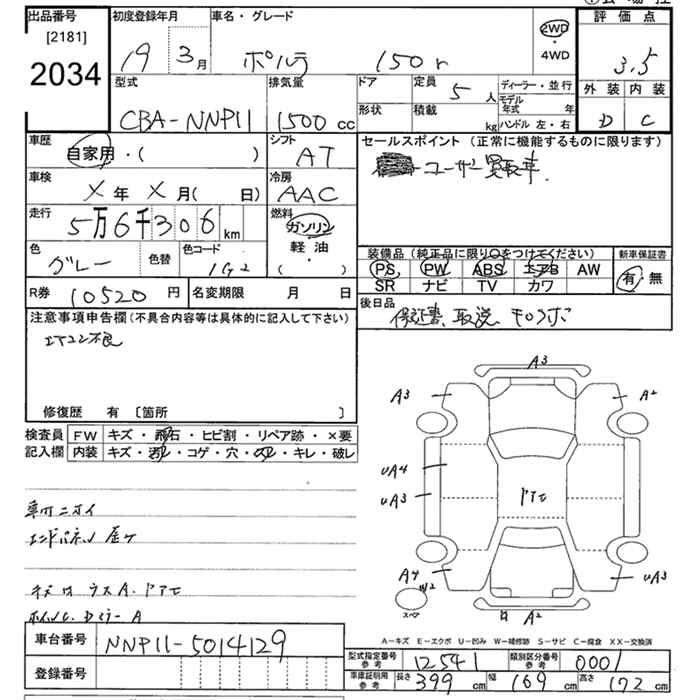 出品番号 初度登録年月 車名・グレード 評価点
[2181] 2WD
2034 19 3月 ポルテ 150r ・4WD 3.5
型式 排気量 ドア 定員 5人 ディーラー・並行 外装 内装
CBA-NNP11 1500cc 形状 積載 kg モデル年式 年 D C
ハンドル 左・右
車歴 シフト セールスポイント (正常に機能するものに限ります)
自家用・( ) AT ユーザー買取車.
車検 冷房
X年 X月( 日) AAC
走行 燃料
5万6千306km ガソリン
色 色替 色コード 軽油 装備品 (純正品に限り○をつけてください) 新車保証書
グレー 1G2 ( ) PS PW ABS エアB AW 有・無
SR ナビ TV カワ
R券 10520円 名変期限 月 日 後日品
注意事項申告欄(不具合内容等は具体的に記入して下さい) 保証書、取説、
エアコン不良
修復歴 有 〔箇所 〕
検査員 FW キズ・飛石・ヒビ割・リペア跡・×要
記入欄 内装 キズ・汚レ・コゲ・穴・スレ・キレ・破レ
A3
A3 A2
UA4
UA3 ドアモ
車内ニオイ
エンドパネル 歪ケ
A4 W2 UA3
スペア A2
A-キズ E-エクボ U-凹み W-補修跡 S-サビ C-腐食 XX-交換済
車台番号 NNP11-5014129
型式指定番号 参考 12541 類別区分番号 参考 0001
登録番号 車庫証明用 参考 長さ 399cm 幅 169cm 高さ 172cm